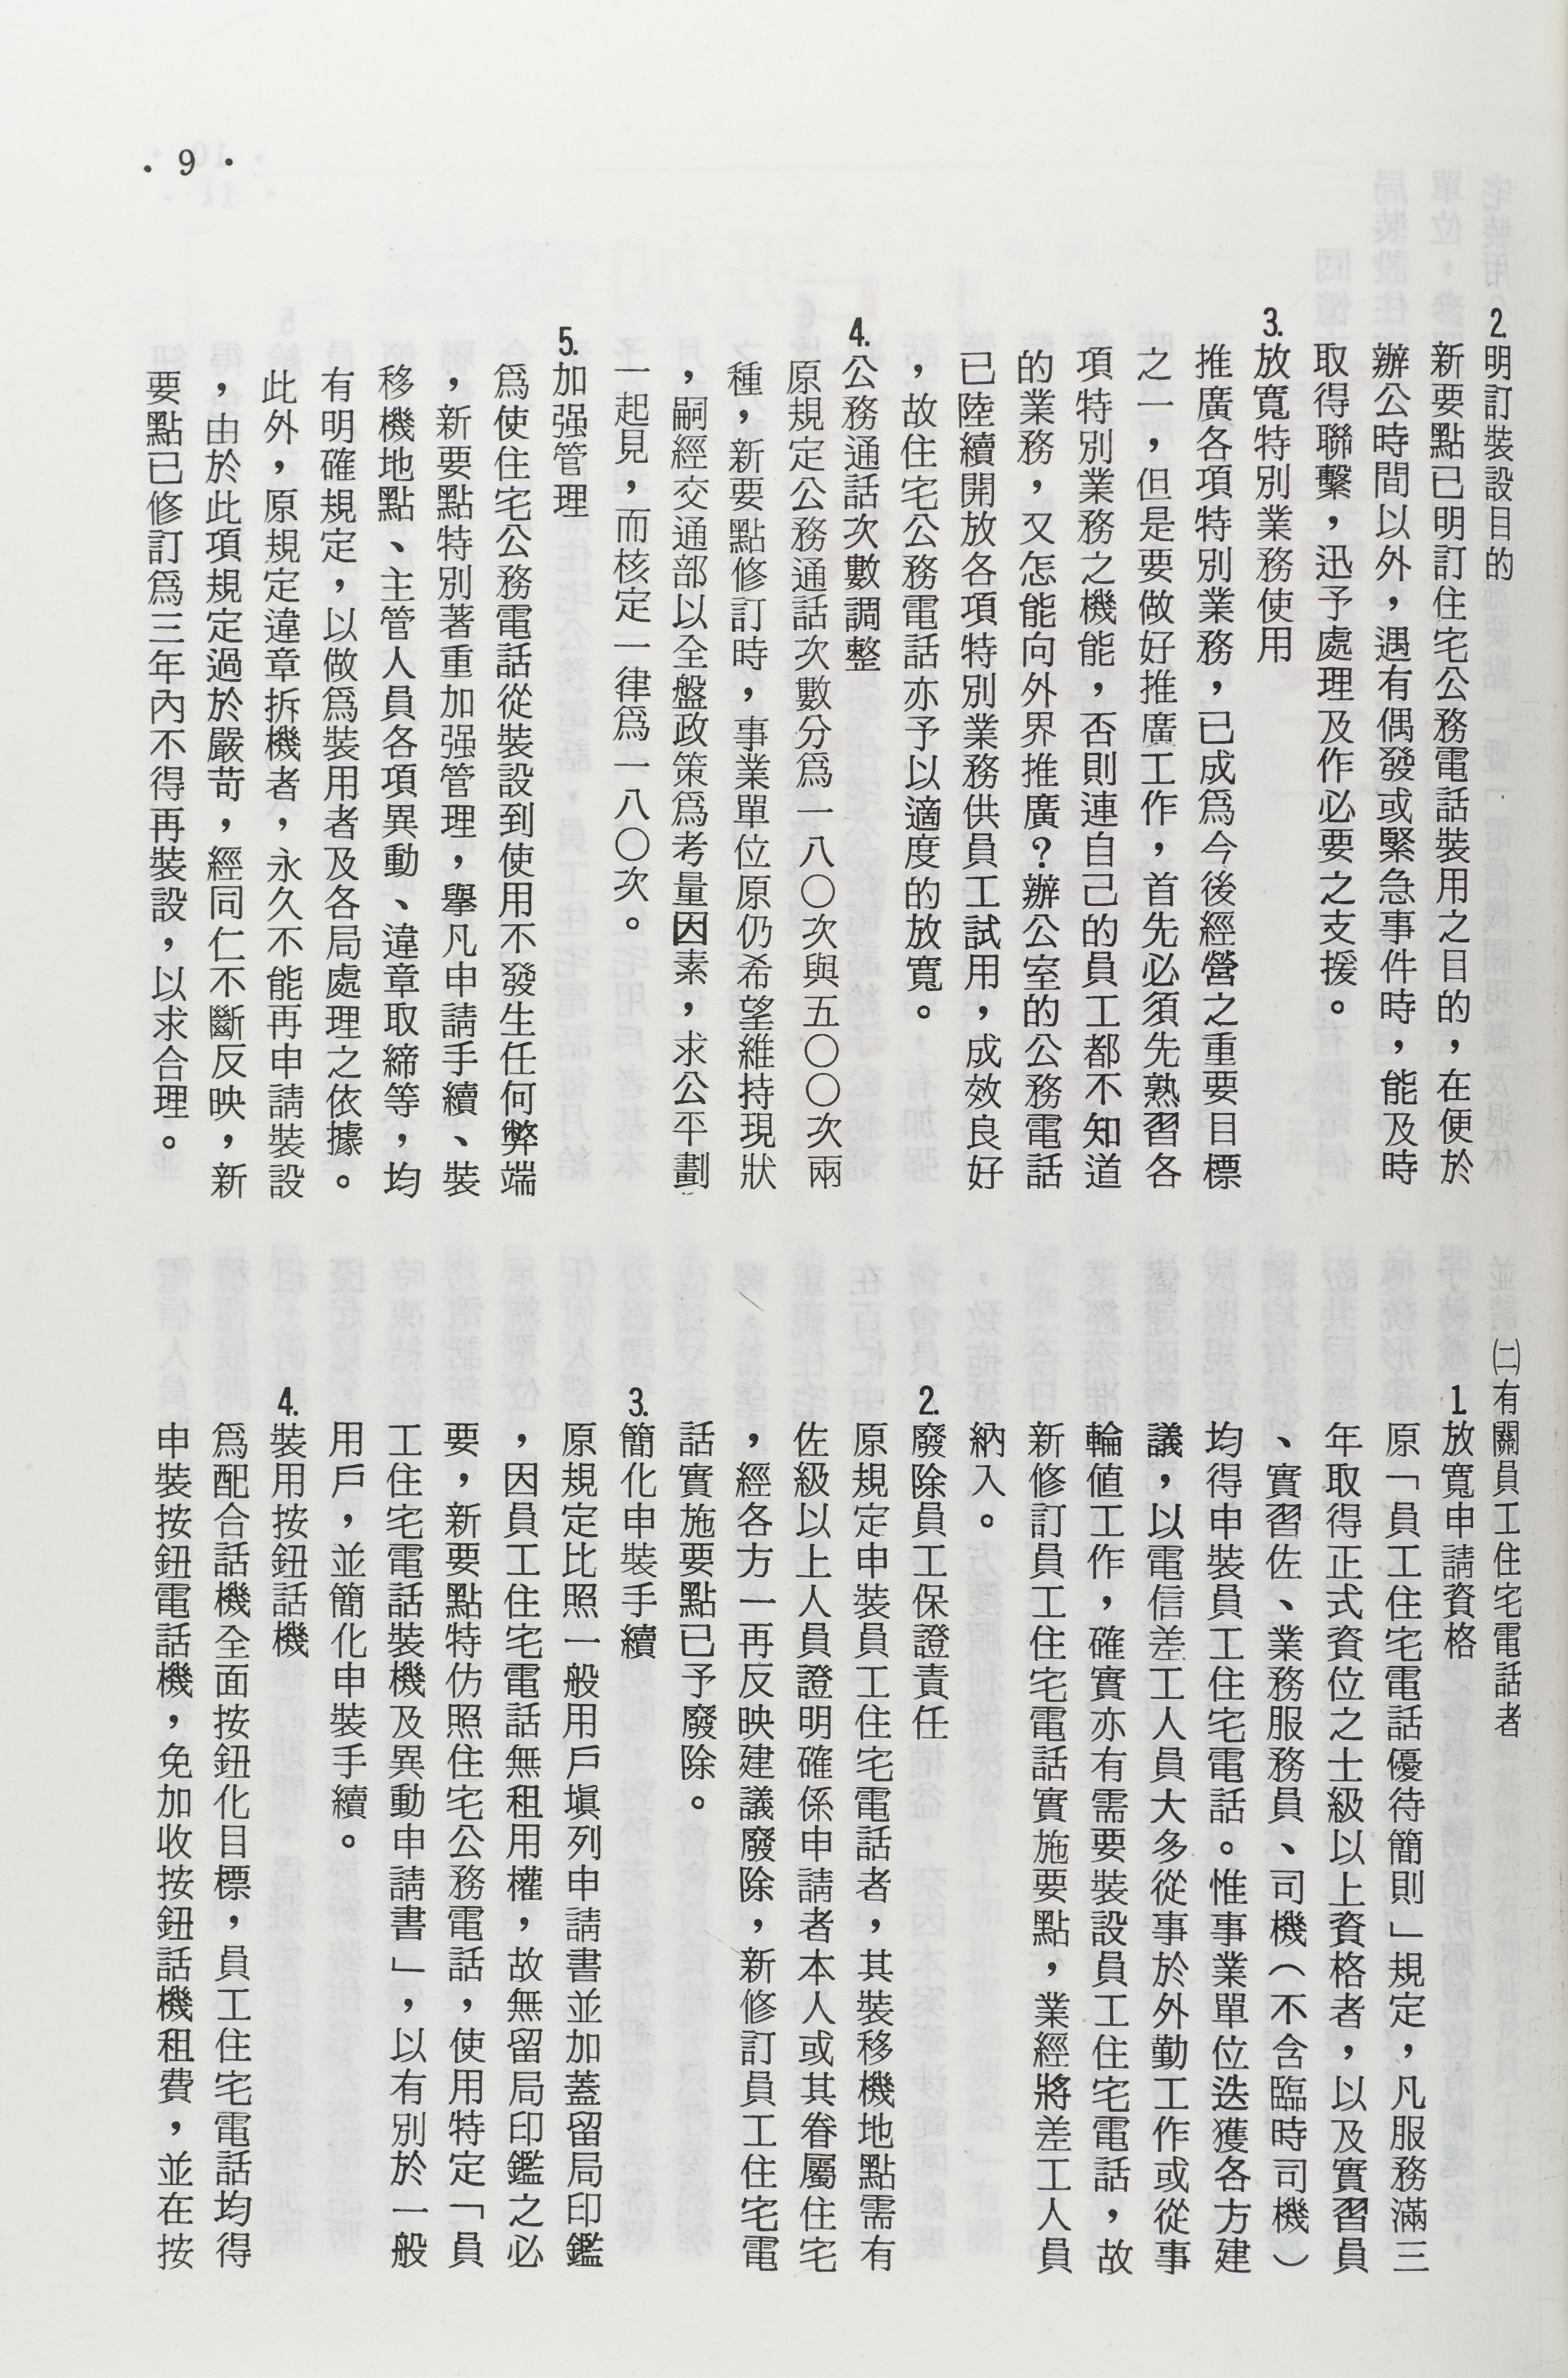 2.明訂裝設目的
新要點已明訂住宅公務電話裝用之目的，在便於
辦公時間以外，遇有偶發或緊急事件時，能及時
取得聯繫，迅予處理及作必要之支援。
3.放寬特別業務使用
推廣各項特別業務，已成爲今後經營之重要目標
之一，但是要做好推廣工作，首先必須先熟習各
項特別業務之機能，否則連自己的員工都不知道
的業務，又怎能向外界推廣？辦公室的公務電話
已陸續開放各項特別業務供員工試用，成效良好
，故住宅公務電話亦予以適度的放寬。
4.公務通話次數調整
原規定公務通話次數分爲一八〇次與五〇〇次兩
種，新要點修訂時，事業單位原仍希望維持現狀
，嗣經交通部以全盤政策爲考量因素，求公平劃
一起見，而核定一律爲一八〇次。
5.加强管理
爲使住宅公務電話從裝設到使用不發生任何弊端
，新要點特別著重加强管理，舉凡申請手續、裝
移機地點、主管人員各項異動、違章取締等，均
有明確規定，以做爲裝用者及各局處理之依據。
此外，原規定違章拆機者，永久不能再申請裝設
，由於此項規定過於嚴苛，經同仁不斷反映，新
要點已修訂爲三年內不得再裝設，以求合理。
㈡有關員工住宅電話者
1.放寬申請資格
原「員工住宅電話優待簡則」規定，凡服務滿三
年取得正式資位之士級以上資格者，以及實習員
、實習佐、業務服務員、司機（不含臨時司機）
均得申裝員工住宅電話。惟事業單位迭獲各方建
議，以電信差工人員大多從事於外勤工作或從事
輪値工作，確實亦有需要裝設員工住宅電話，故
新修訂員工住宅電話實施要點，業經將差工人員
納入。
2.廢除員工保證責任
原規定申裝員工住宅電話者，其裝移機地點需有
佐級以上人員證明確係申請者本人或其眷屬住宅
，經各方一再反映建議廢除，新修訂員工住宅電
話實施要點已予廢除。
3.簡化申裝手續
原規定比照一般用戶塡列申請書並加蓋留局印鑑
，因員工住宅電話無租用權，故無留局印鑑之必
要，新要點特仿照住宅公務電話，使用特定「員
工住宅電話裝機及異動申請書」，以有別於一般
用戶，並簡化申裝手續。
4.裝用按鈕話機
爲配合話機全面按鈕化目標，員工住宅電話均得
申裝按鈕電話機，免加收按鈕話機租費，並在按
· 9 ·